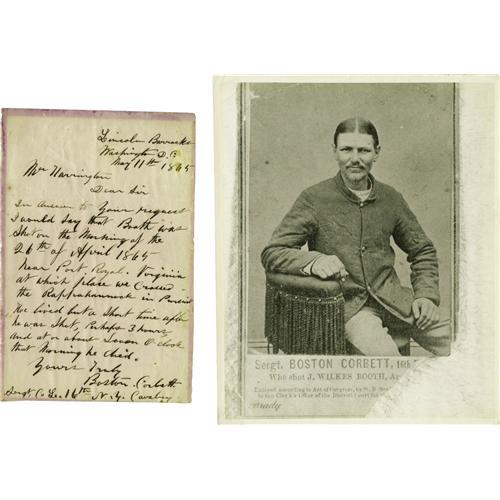 Lincoln Barracks
Washington D.C.
May 11th 1865
Mr Harrington
Dear Sir
In Answer to Your request
I would say that Booth was
Shot on the Morning of the
26th of April 1865
Near Port Royal. Virginia
at which place we Crossed
the Rappahannock in Pursuit
He lived but a Short time after
he was Shot, Perhaps 3 hours
and at or about Seven O clock
that Morning he died.
Yours Truly
Boston Corbett
Sergt Co L. 16th N.Y. Cavalry
Sergt. BOSTON CORBETT, 16th
Who shot J. WILKES BOOTH, Ap
Entered according to Act of Congress, by M. B.
in the Clerk's Office of the District Court for
Brady